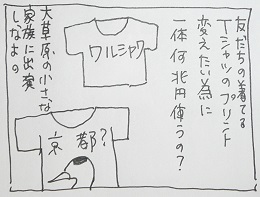 友だちの着てる
Tシャツのプリント
変えたい為に
一体何兆円使うの?
ワルシャワ
大草原の小さな
家族に出演
しなよの
京都?